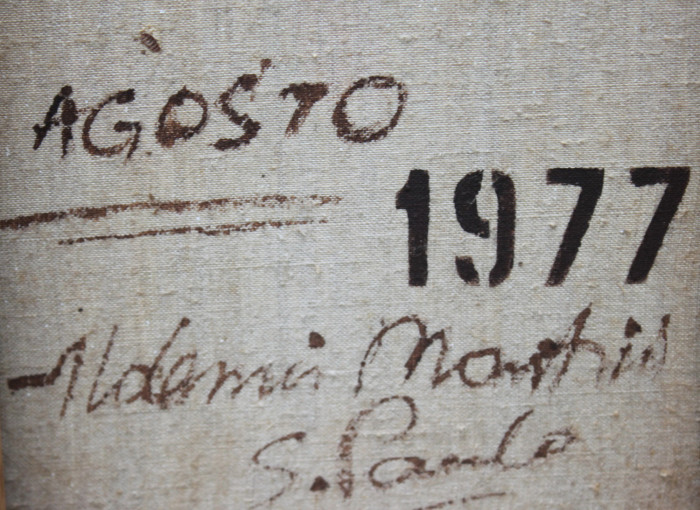 AGOSTO
1977
Aldemir Martins
S. Paulo